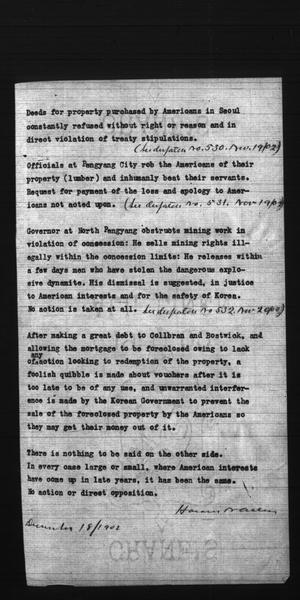 Deeds for property purchased by Americans in Seoul
constantly refused without right or reason and in
direct violation of treaty stipulations.
(See despatch no. 530. Nov. 19/02)
Officials at Pengyang City rob the Americans of their
property (lumber) and inhumanly beat their servants.
Request for payment of the loss and apology to Amer-
icans not acted upon. (See despatch no. 531. Nov 19/02)
Governor at North Pengyang obstructs mining work in
violation of concession: He sells mining rights ill-
egally within the concession limits: He releases within
a few days men who have stolen the dangerous explo-
sive dynamite. His dismissal is suggested, in justice
to American interests and for the safety of Korea.
No action is taken at all. See despatch no 532. Nov. 20/02)
After making a great debt to Collbran and Bostwick, and
allowing the mortgage to be foreclosed owing to lack
any
of action looking to redemption of the property, a
foolish quibble is made about vouchers after it is
too late to be of any use, and unwarranted interfer-
ence is made by the Korean Government to prevent the
sale of the foreclosed property by the Americans so
they may get their money out of it.
There is nothing to be said on the other side.
In every case large or small, where American interests
have come up in late years, it has been the same.
No action or direct opposition.
Horace N Allen
December 18/1902
CRANE'S